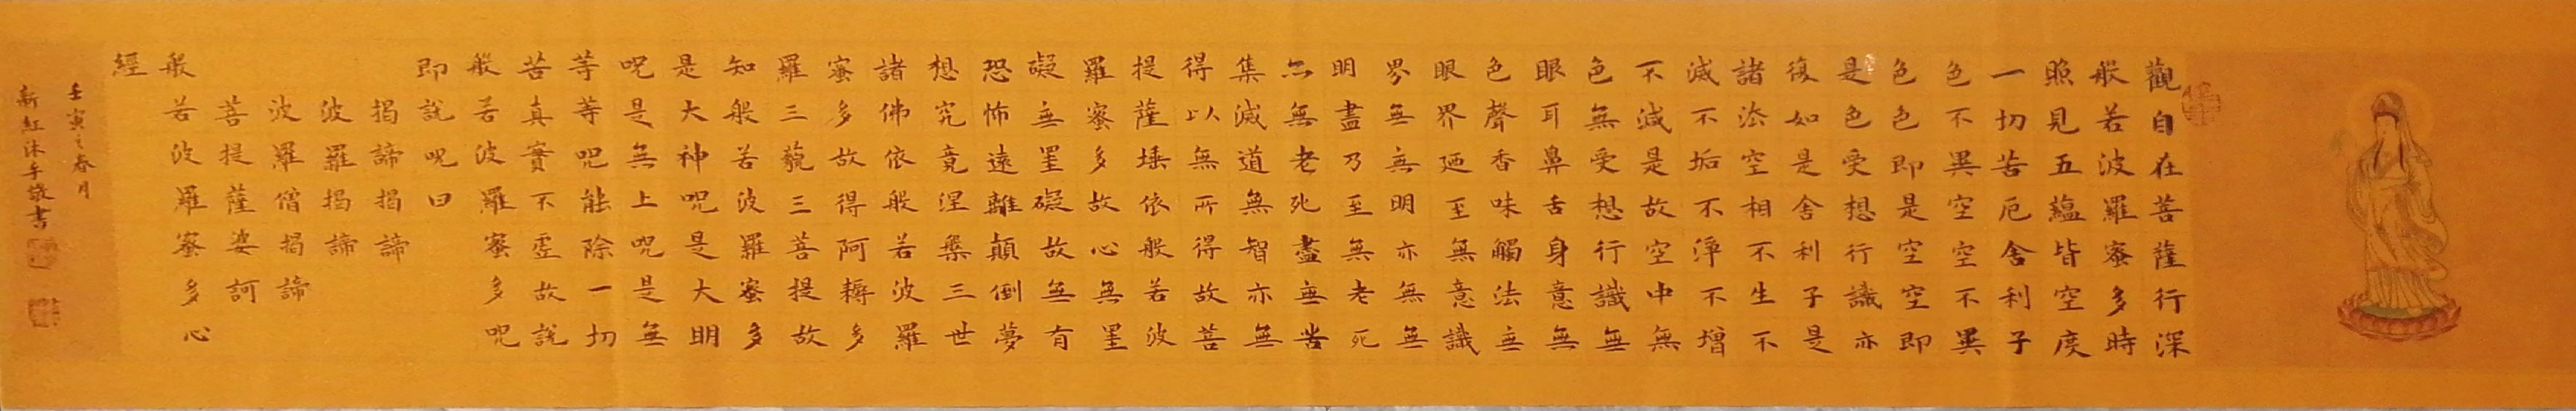 觀自在菩薩行深
般若波羅蜜多時
照見五蘊皆空度
一切苦厄舍利子
色不異空空不異
色色即是空空即
是色受想行識亦
復如是舍利子是
諸法空相不生不
滅不垢不淨不增
不減是故空中無
色無受想行識無
眼耳鼻舌身意無
色聲香味觸法無
眼界廼至無意識
界無無明亦無無
明盡乃至無老死
无無老死盡無苦
集滅道無智亦無
得以無所得故菩
提薩埵依般若波
羅蜜多故心無罣
礙無罣礙故無有
恐怖遠離顛倒夢
想究竟涅槃三世
諸佛依般若波羅
蜜多故得阿耨多
羅三藐三菩提故
知般若波羅蜜多
是大神咒是大明
咒是無上咒是無
等等咒能除一切
苦真實不虛故說
般若波羅蜜多咒
即說咒曰
揭諦揭諦
波羅揭諦
波羅僧揭諦
菩提薩婆訶
般若波羅蜜多心
經
壬寅之春月
新紅沐手敬書